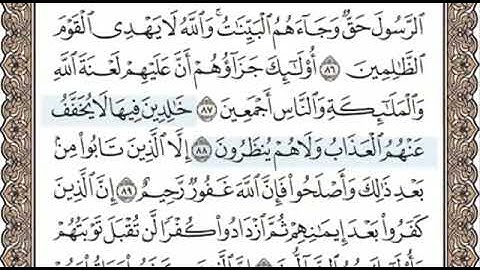 ٱلرَّسُولَ حَقٌّ وَجَآءَهُمُ ٱلْبَيِّنَٰتُ ۚ وَٱللَّهُ لَا يَهْدِى ٱلْقَوْمَ
ٱلظَّٰلِمِينَ ۝٨٦ أُو۟لَٰٓئِكَ جَزَآؤُهُمْ أَنَّ عَلَيْهِمْ لَعْنَةَ ٱللَّهِ
وَٱلْمَلَٰٓئِكَةِ وَٱلنَّاسِ أَجْمَعِينَ ۝٨٧ خَٰلِدِينَ فِيهَا لَا يُخَفَّفُ
عَنْهُمُ ٱلْعَذَابُ وَلَا هُمْ يُنظَرُونَ ۝٨٨ إِلَّا ٱلَّذِينَ تَابُوا۟ مِنۢ
بَعْدِ ذَٰلِكَ وَأَصْلَحُوا۟ فَإِنَّ ٱللَّهَ غَفُورٌ رَّحِيمٌ ۝٨٩ إِنَّ ٱلَّذِينَ
كَفَرُوا۟ بَعْدَ إِيمَٰنِهِمْ ثُمَّ ٱزْدَادُوا۟ كُفْرًا لَّن تُقْبَلَ تَوْبَتُهُمْ